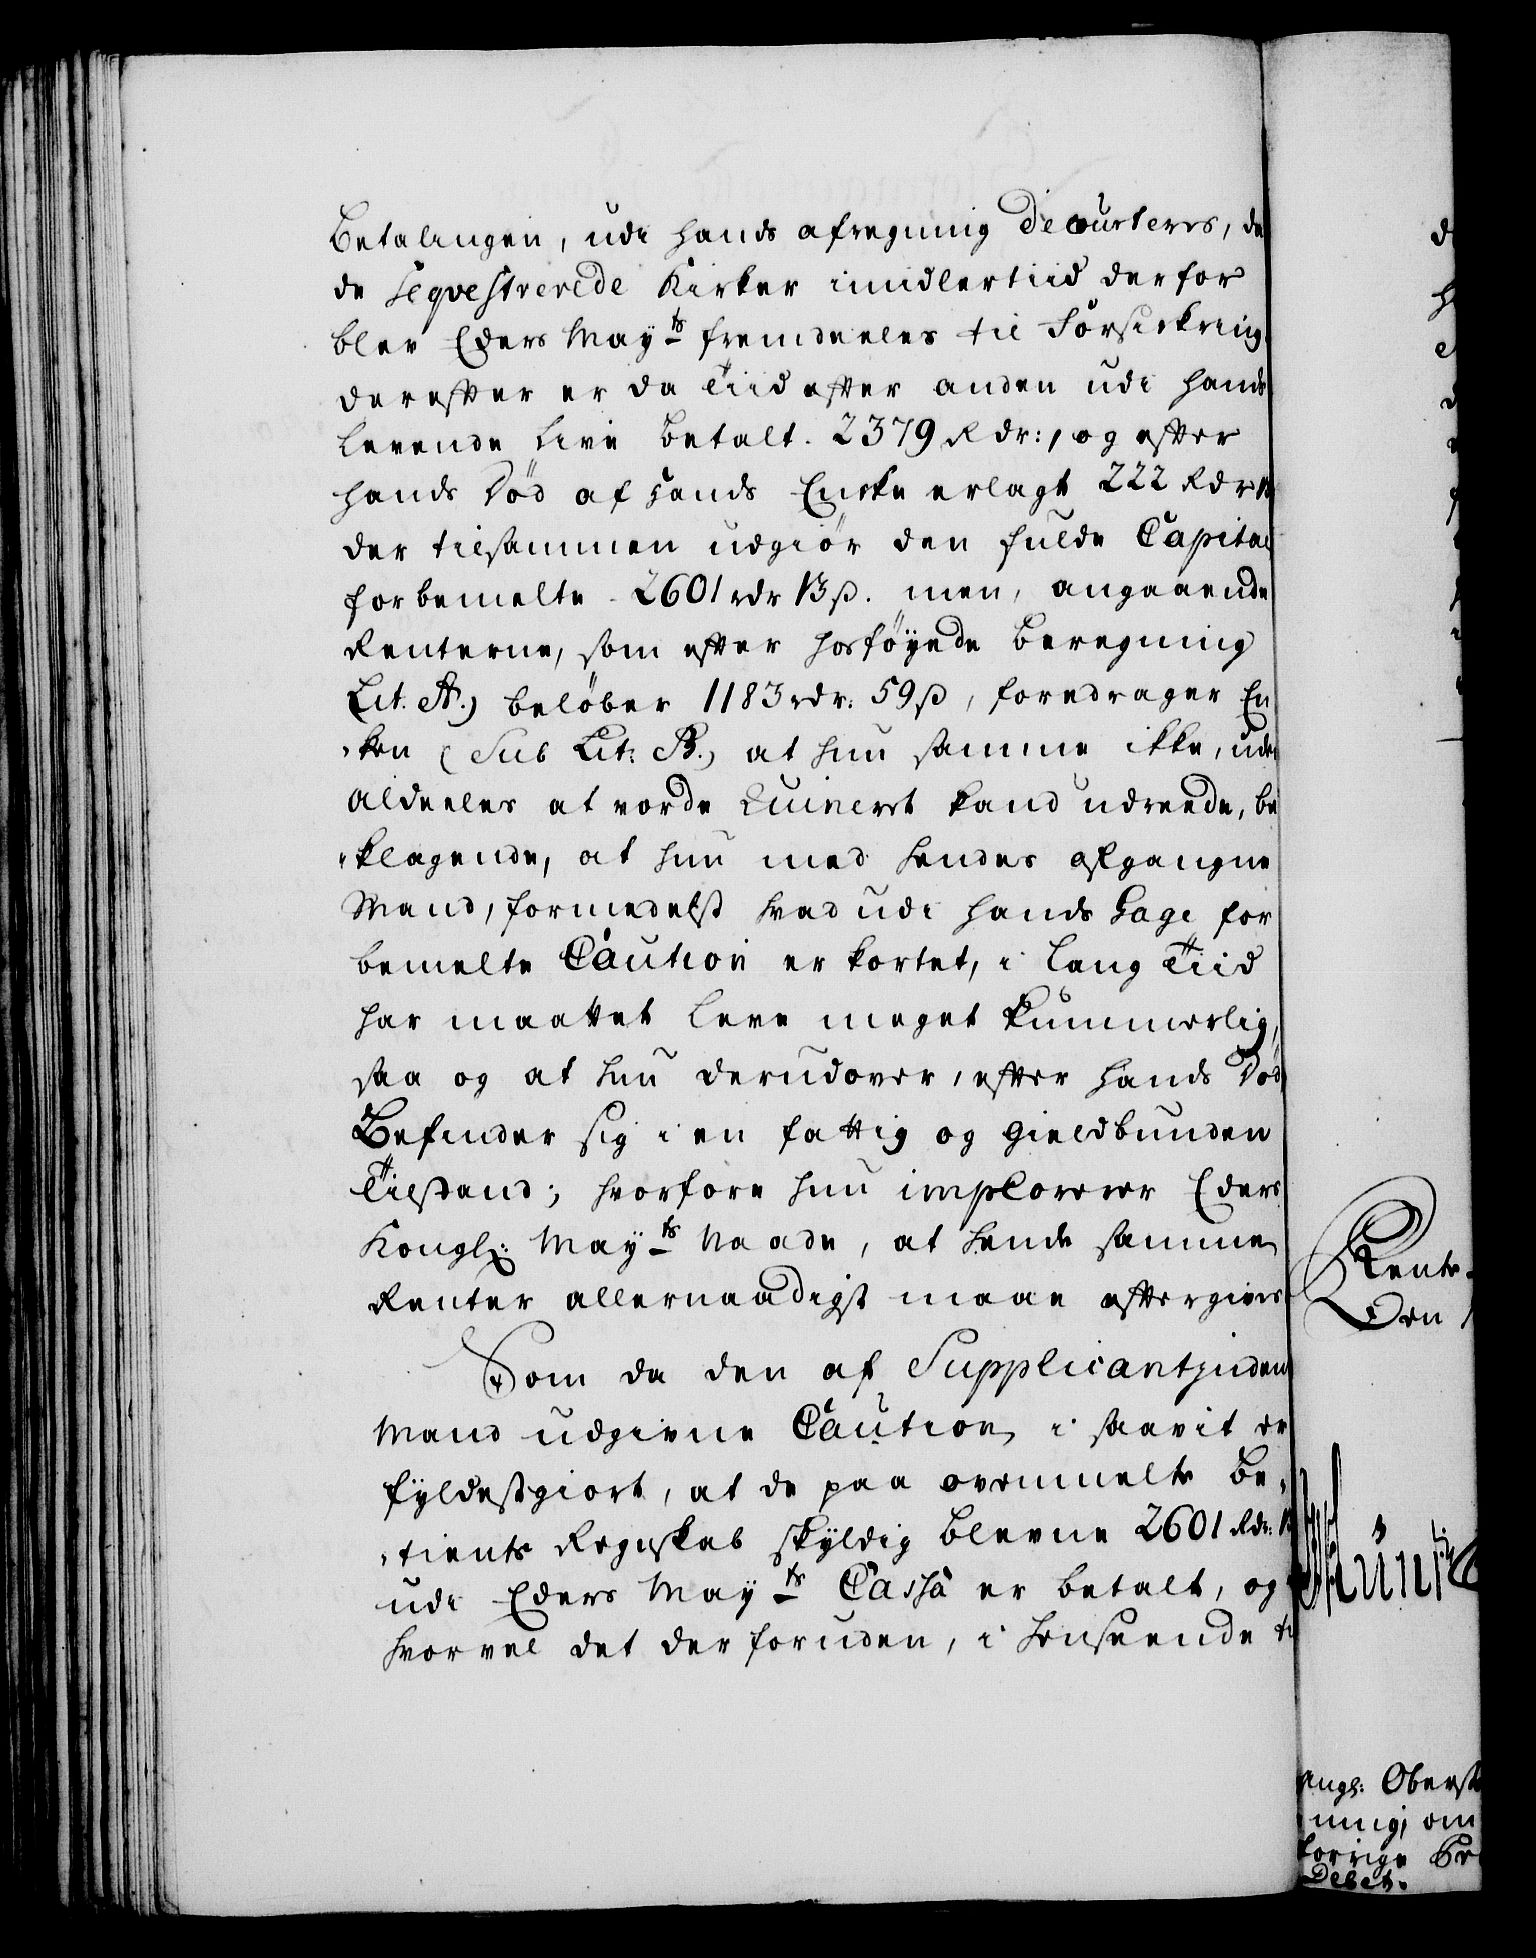 Betalingen, udi hands afregning decourteris, da
de seqvestrerede Kirker imidlertiid derfor
blev Eders Mayts fremdeeles til Forsickring.
derefter er da Tiid efter anden udi hands
levende Live betalt. 2379 Rdr:, og efter
hands Död af hands Encke erlagt 222 Rdr 13
der tilsammen udgiör den fulde Capital
forbemelte 2601 rdr 13 ß. men, angaaende
Renterne, som efter hosföyede Beregning
Lit. A.) belöber 1183 rdr: 59 ß, foredrager En
-ken (Sub Lit: B.) at hun samme ikke, uden
aldeeles at vorde Ruinert kand udreede, be
-klagende, at hun med hendes afgangne
Mand, formedelst hvad udi hands Gage for
bemelte Caution er kortet, i lang Tiid
har maattet leve meget kummerlig,
saa og at hun derudover, efter hands Död
Befinder sig i en fattig og gieldbunden
Tilstand; hvorfore hun implorerer Eders
Kongl: Mayts Naade, at hende samme
Renter allernaadigst maae eftergives
Som da den af Supplicantjnden
Mand udgivne Caution i saavit er
fyldestgiort, at de paa ovenmelte Be-
-tients Regnskab skyldig blevne 2601 Rdr: 13
udi Eders Mayts Cassa er betalt, og
hvorvel det der foruden, i henseende til
Rente-
Den
Oberst
ning, om
forrige
Debet.